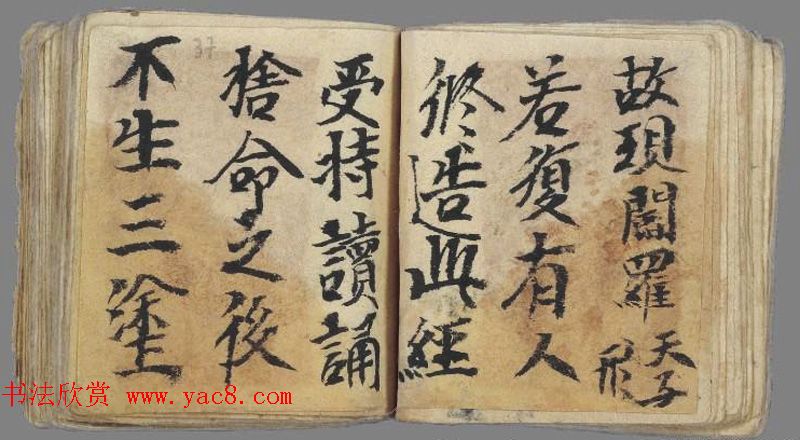 故現閻羅天子形
若復有人
修造此經
受持讀誦
捨命之後
不生三塗
37
书法欣赏 www.yac8.com